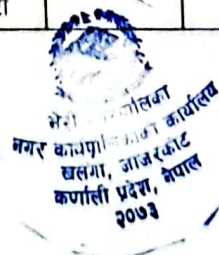 भेरी
नगर कार्यपालिकाको कार्यालय
खलंगा, जाजरकोट
कर्णाली प्रदेश, नेपाल
२०७३